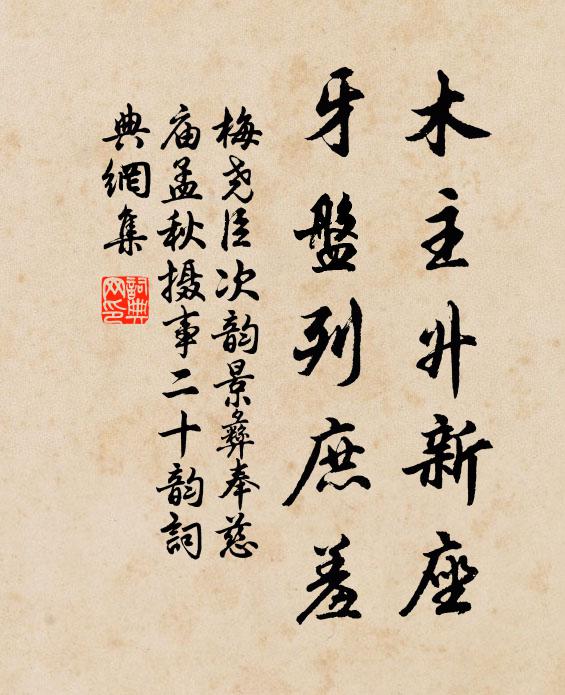 木主升新座
牙盤列庶羞
梅尧臣次韵景彝奉慈
庙孟秋摄事二十韵詞
典網集
詞典
网印